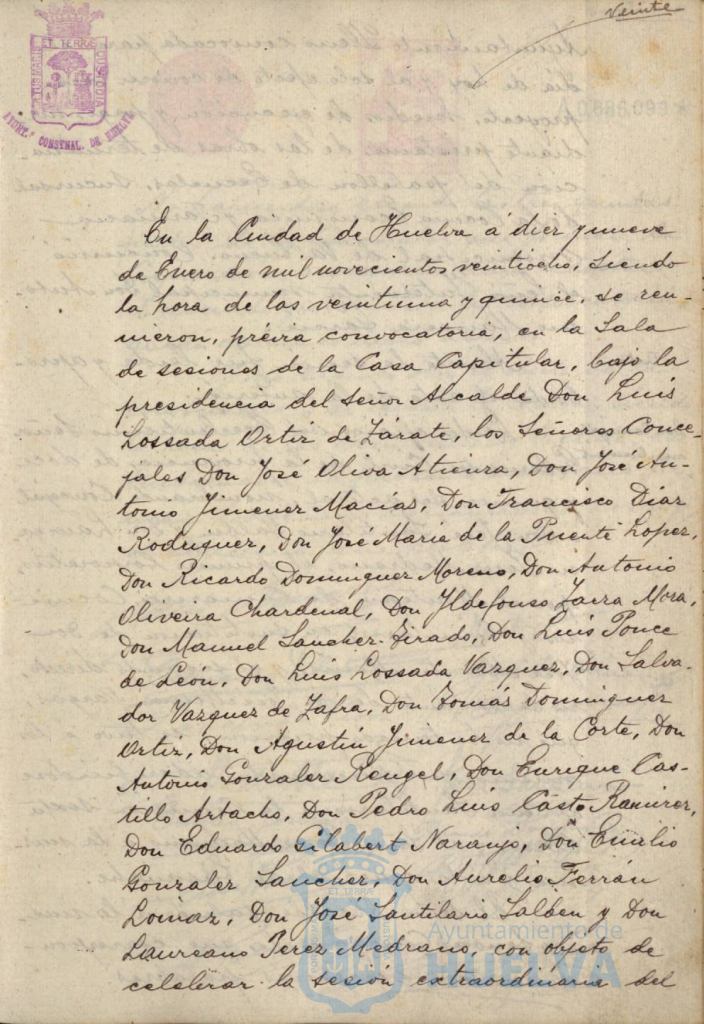 Veinte
PORTUS MARIS ET TERRÆ CUSTODIA
AYUNT.º CONSTNAL. DE HUELVA
En la Ciudad de Huelva á diez y nueve
de Enero de mil novecientos veintiocho, siendo
la hora de las veintiuna y quince, se reu-
nieron, prévia convocatoria, en la Sala
de sesiones de la Casa Capitular, bajo la
presidencia del señor Alcalde Don Luis
Lossada Ortiz de Zárate, los Señores Conce-
jales Don José Oliva Atienza, Don José An-
tonio Jimenez Macías, Don Francisco Diaz
Rodriguez, Don José Maria de la Puente Lopez,
Don Ricardo Dominguez Moreno, Don Antonio
Oliveira Chardenal, Don Yldefonso Zarza Mora,
Don Manuel Sanchez-Tirado, Don Luis Ponce
de León, Don Luis Lossada Vazquez, Don Salva-
dor Vazquez de Zafra, Don Tomás Dominguez
Ortiz, Don Agustín Jimenez de la Corte, Don
Antonio Gonzalez Rengel, Don Enrique Cas-
tillo Artacho, Don Pedro Luis Casto Ramirez,
Don Eduardo Gilabert Naranjo, Don Emilio
Gonzalez Sanchez, Don Aurelio Ferrán
Lomaz, Don José Santilario Salben y Don
Laureano Perez Medrano, con objeto de
celebrar la sesión extraordinaria del
Ayuntamiento de
HUELVA